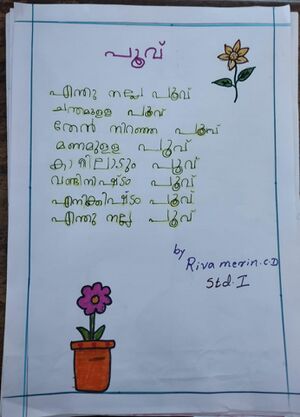 പൂവ്
എന്തു നല്ല പൂവ്
ചന്തമുള്ള പൂവ്
തേൻ നിറഞ്ഞ പൂവ്
മണമുള്ള പൂവ്
കാറ്റിലാടും പൂവ്
വണ്ടിനിഷ്ടം പൂവ്
എനിക്കിഷ്ടം പൂവ്
എന്തു നല്ല പൂവ്
by
Riva merin.C.D
Std. I